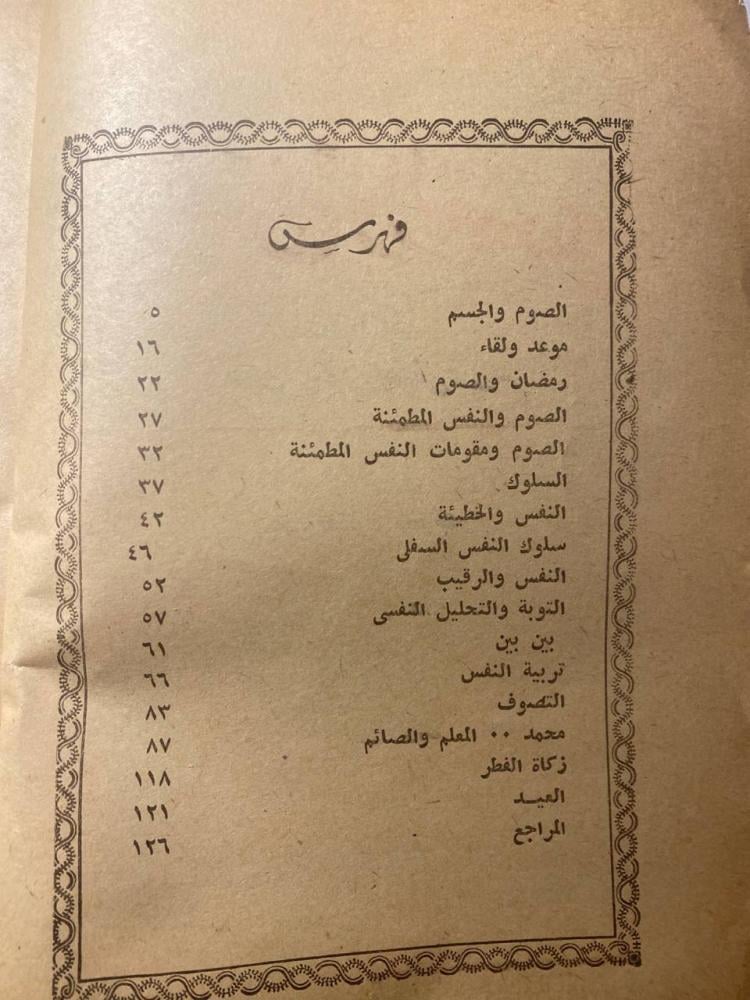 فهرس
الصوم والجسم ٥
موعد ولقاء ١٦
رمضان والصوم ٢٢
الصوم والنفس المطمئنة ٢٧
الصوم ومقومات النفس المطمئنة ٣٢
السلوك ٣٧
النفس والخطيئة ٤٢
سلوك النفس السفلى ٤٦
النفس والرقيب ٥٢
التوبة والتحليل النفسى ٥٧
بين بين ٦١
تربية النفس ٦٦
التصوف ٨٣
محمد ٠٠ المعلم والصائم ٨٧
زكاة الفطر ١١٨
العيــد ١٢١
المراجع ١٢٦